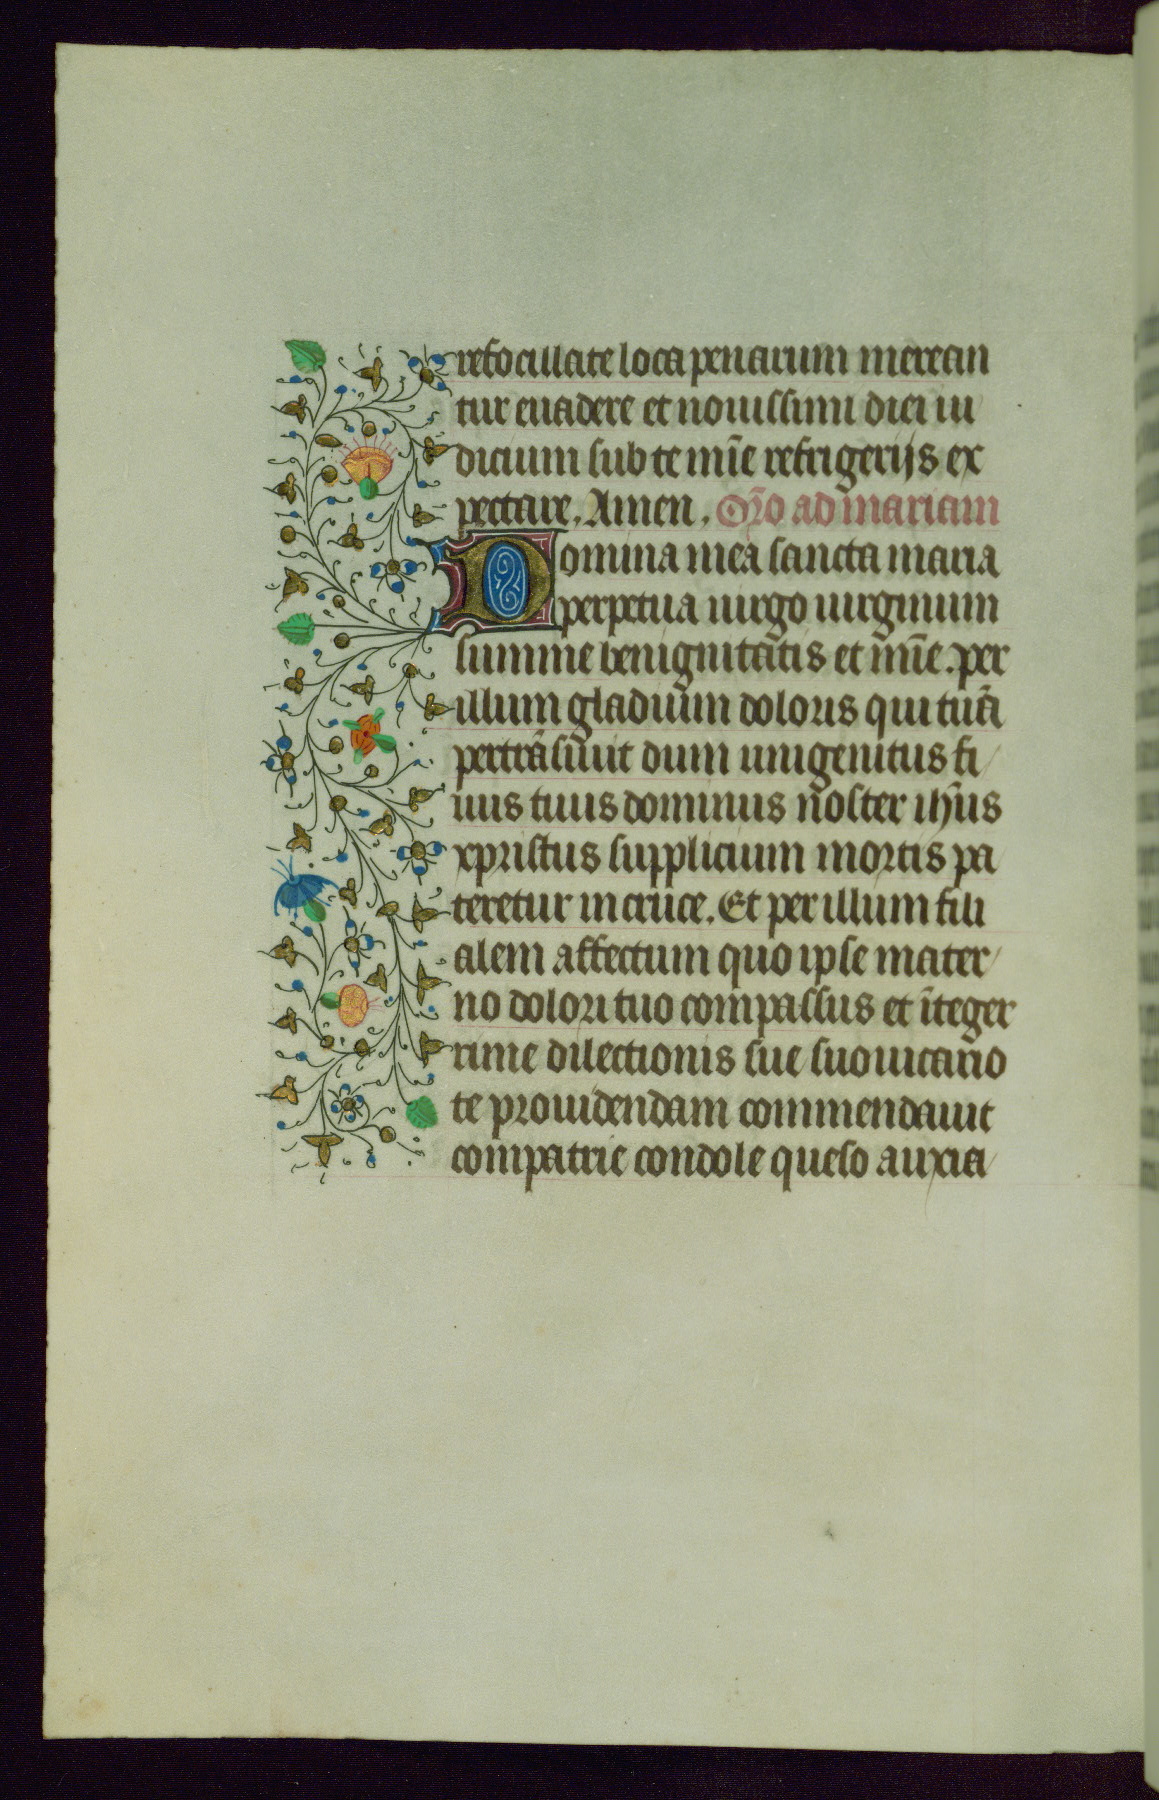 refocillate loca penarum merean
tur euadere et nouissimi diei iu
dicium sub te mīe refrigerijs ex
pectare. Amen. Or̄o ad mariam
Domina mea sancta maria
perpetua uirgo uirginum
summe benignitatis et mīe. per
illum gladium doloris qui tuā
pertrāsiuit dum unigenitus fi
lius tuus dominus noster ih̄us
xpristus supplicium mortis pa
teretur in cruce. Et per illum fili
alem affectum quo ipse mater
no dolori tuo compassus et īteger
rime dilectionis sue suo uicario
te prouidendam commendauit
compatrie condole queso anxia